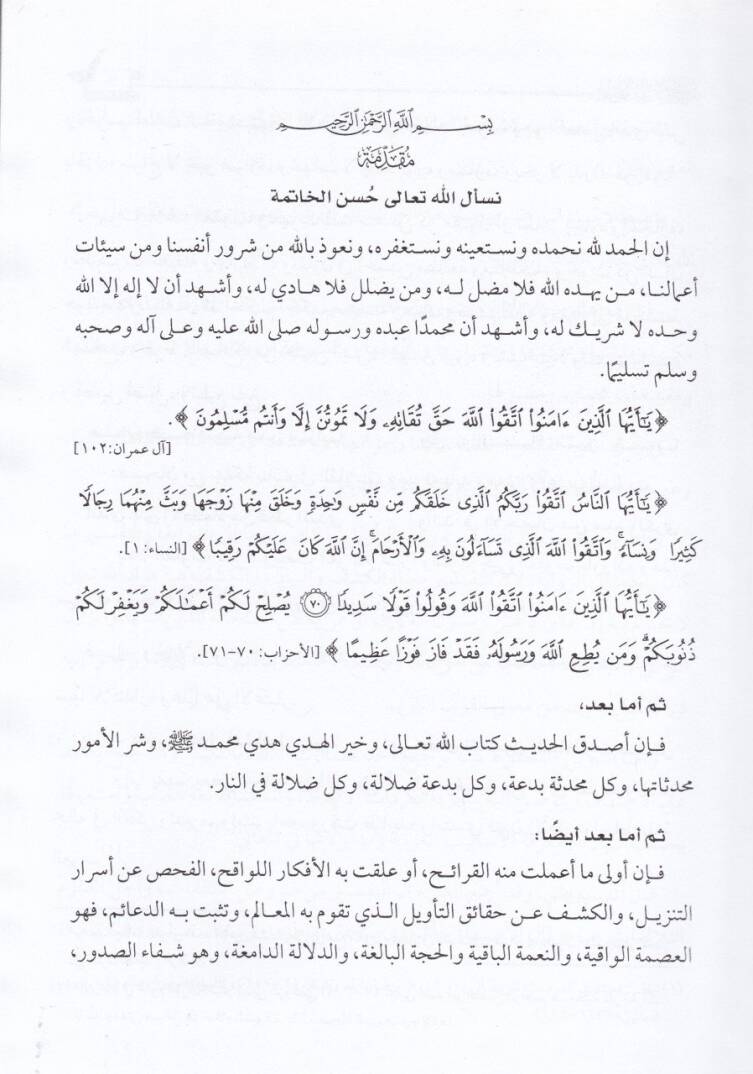 بِسْمِ اللَّهِ الرَّحْمَٰنِ الرَّحِيمِ
مُقَدِّمَة
نسأل الله تعالى حُسن الخاتمة
إن الحمد لله نحمده ونستعينه ونستغفره، ونعوذ بالله من شرور أنفسنا ومن سيئات
أعمالنا، من يهده الله فلا مضل له، ومن يضلل فلا هادي له، وأشهد أن لا إله إلا الله
وحده لا شريك له، وأشهد أن محمدًا عبده ورسوله صلى الله عليه وعلى آله وصحبه
وسلم تسليمًا.
﴿ يَٰٓأَيُّهَا ٱلَّذِينَ ءَامَنُوا۟ ٱتَّقُوا۟ ٱللَّهَ حَقَّ تُقَاتِهِۦ وَلَا تَمُوتُنَّ إِلَّا وَأَنتُم مُّسْلِمُونَ ﴾.
[آل عمران: ١٠٢]
﴿ يَٰٓأَيُّهَا ٱلنَّاسُ ٱتَّقُوا۟ رَبَّكُمُ ٱلَّذِى خَلَقَكُم مِّن نَّفْسٍ وَٰحِدَةٍ وَخَلَقَ مِنْهَا زَوْجَهَا وَبَثَّ مِنْهُمَا رِجَالًا
كَثِيرًا وَنِسَآءً ۚ وَٱتَّقُوا۟ ٱللَّهَ ٱلَّذِى تَسَآءَلُونَ بِهِۦ وَٱلْأَرْحَامَ ۚ إِنَّ ٱللَّهَ كَانَ عَلَيْكُمْ رَقِيبًا ﴾ [النساء: ١].
﴿ يَٰٓأَيُّهَا ٱلَّذِينَ ءَامَنُوا۟ ٱتَّقُوا۟ ٱللَّهَ وَقُولُوا۟ قَوْلًا سَدِيدًا ۝٧٠ يُصْلِحْ لَكُمْ أَعْمَٰلَكُمْ وَيَغْفِرْ لَكُمْ
ذُنُوبَكُمْ ۗ وَمَن يُطِعِ ٱللَّهَ وَرَسُولَهُۥ فَقَدْ فَازَ فَوْزًا عَظِيمًا ﴾ [الأحزاب: ٧٠-٧١].
ثم أما بعد،
فإن أصدق الحديث كتاب الله تعالى، وخير الهدي هدي محمد ﷺ، وشر الأمور
محدثاتها، وكل محدثة بدعة، وكل بدعة ضلالة، وكل ضلالة في النار.
ثم أما بعد أيضًا:
فإن أولى ما أعملت منه القرائح، أو علقت به الأفكار اللواقح، الفحص عن أسرار
التنزيل، والكشف عن حقائق التأويل الذي تقوم به المعالم، وتثبت به الدعائم، فهو
العصمة الواقية، والنعمة الباقية والحجة البالغة، والدلالة الدامغة، وهو شفاء الصدور،